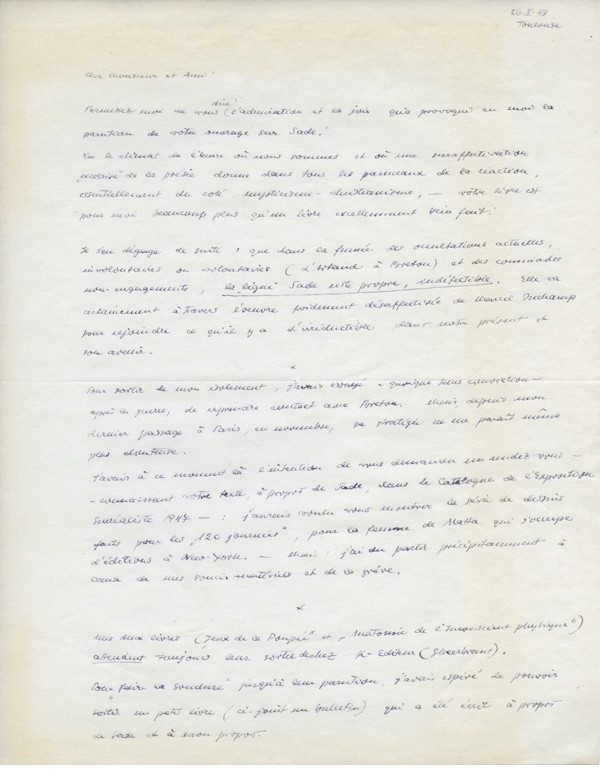 26-II-48
Toulouse
Cher Monsieur et Ami!
dire!
Permettez-moi de vous l'admiration et la joie qu'a provoqué en moi la
parution de votre ouvrage sur Sade!
Vu le climat de l'heure où nous sommes et où une suraffectivation
"massive" de la poésie donne dans tous les panneaux de la réaction,
essentiellement du coté mysticisme-christianisme, — votre livre est
pour moi beaucoup plus qu'un livre excellemment bien fait!
Je s'en dégage de suite: que dans la fumée des occultations actuelles,
involontaires ou volontaires (d'Artaud à Breton) et des commodes
non-engagements, la ligne Sade reste propre, indéfectible. Elle va
certainement à travers l'œuvre froidement désaffectivée de Marcel Duchamp
pour rejoindre ce qu'il y a d'irréductible dans notre présent et
son avenir.
*
Pour sortir de mon isolement, j'avais essayé - quoique sans conviction -
après la guerre, de reprendre contact avec Breton. Mais, depuis mon
dernier passage à Paris, en novembre, sa stratégie ne me paraît même
plus douteuse.
J'avais à ce moment là l'intention de vous demander un rendez-vous -
- connaissant votre texte, à propos de Sade, dans le Catalogue de l'Exposition
Surréaliste 1947 — : j'aurais voulu vous montrer la série de dessins
faits pour les "120 journées", pour la femme de Matta qui s'occupe
d'éditions à New-York. — Mais: j'ai du partir précipitamment à
cause de mes soucis matériels et de la grève.
*
Mes deux livres ("Jeux de la Poupée" et "Anatomie de l'Inconscient physique")
attendent toujours leur sortie chez K-Editeur (Gheerbrant).
Pour "faire la soudure" jusqu'à leur parution, j'avais espéré de pouvoir
sortir un petit livre (ci-joint un bulletin) qui a été écrit à propos
de Sade et à mon propos.